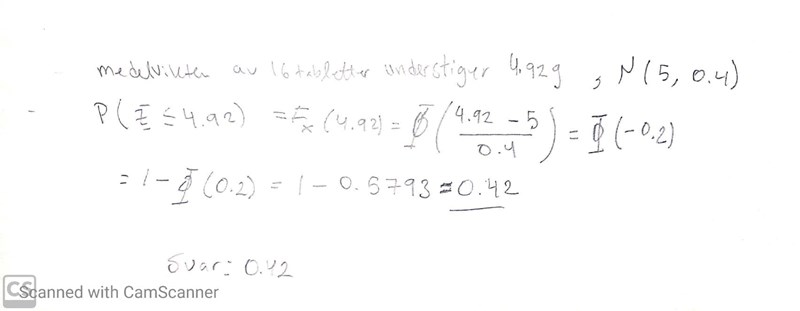 medelvikten av 16 tabletter understiger 4.92g , N(5, 0.4)
P(ξ ≤ 4.92) = Fx (4.92) = Φ(4.92 - 5 / 0.4) = Φ(-0.2)
= 1 - Φ(0.2) = 1 - 0.5793 = 0.42
Svar: 0.42
CS Scanned with CamScanner